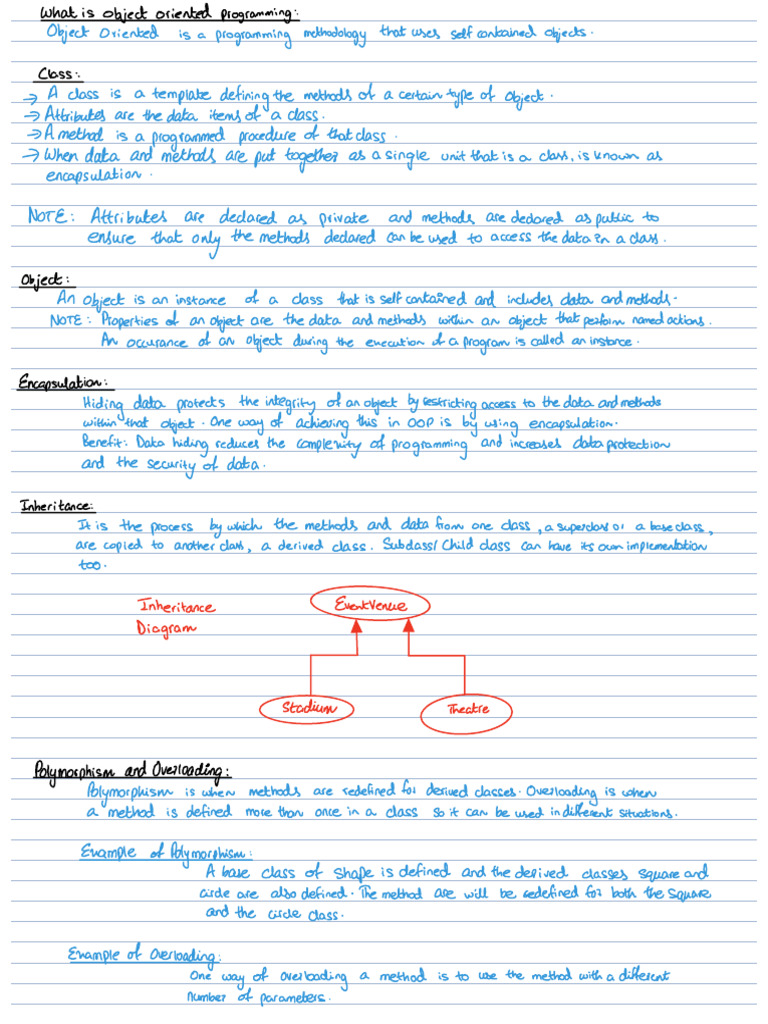 What is object oriented programming:
Object Oriented is a programming methodology that uses self contained objects.
Class:
→ A class is a template defining the methods of a certain type of object.
→ Attributes are the data items of a class.
→ A method is a programmed procedure of that class.
→ When data and methods are put together as a single unit that is a class, is known as
encapsulation.
NOTE: Attributes are declared as private and methods are declared as public to
ensure that only the methods declared can be used to access the data in a class.
Object:
An object is an instance of a class that is self contained and includes data and methods.
NOTE: Properties of an object are the data and methods within an object that perform named actions.
An occurance of an object during the execution of a program is called an instance.
Encapsulation:
Hiding data protects the integrity of an object by restricting access to the data and methods
within that object. One way of achieving this in OOP is by using encapsulation.
Benefit: Data hiding reduces the complexity of programming and increases data protection
and the security of data.
Inheritance:
It is the process by which the methods and data from one class, a superclass or a base class,
are copied to another class, a derived class. Subclass/Child class can have its own implementation
too.
Inheritance
Diagram
EventVenue
Stadium
Theatre
Polymorphism and Overloading:
Polymorphism is when methods are redefined for derived classes. Overloading is when
a method is defined more than once in a class so it can be used in different situations.
Example of Polymorphism:
A base class of shape is defined and the derived classes square and
circle are also defined. The method are will be redefined for both the square
and the circle class.
Example of Overloading:
One way of overloading a method is to use the method with a different
number of parameters.